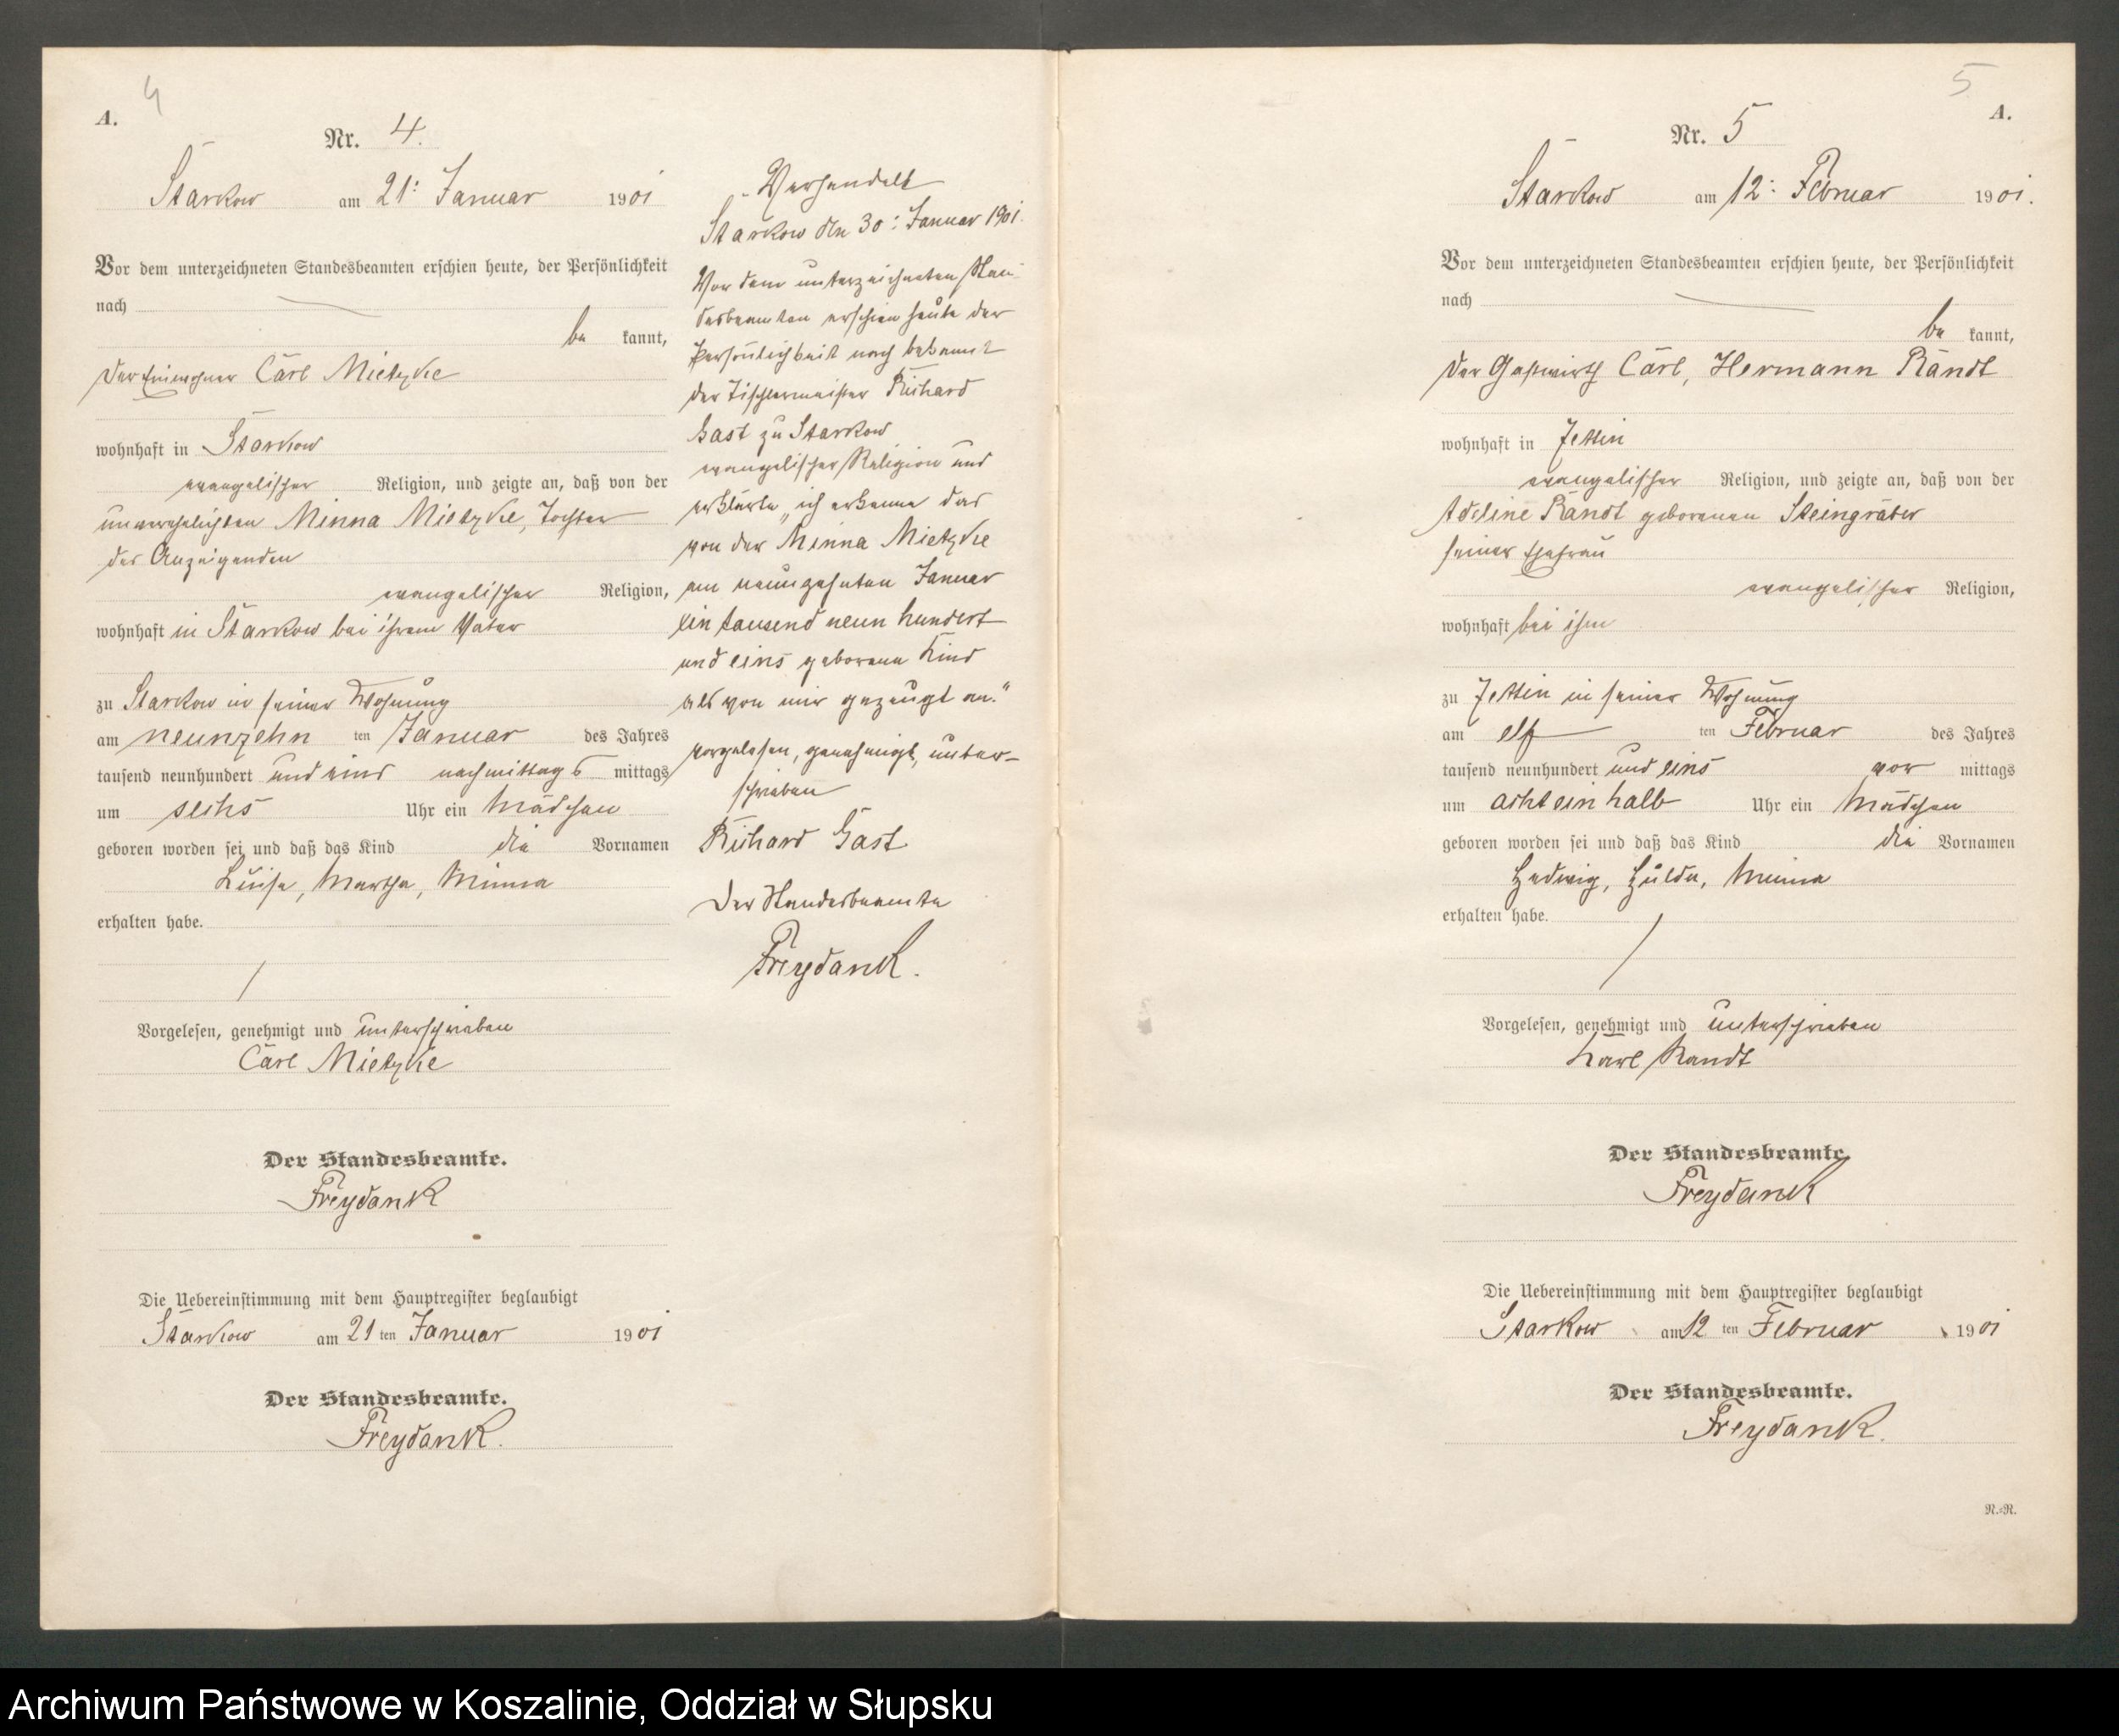 4
A.
Nr. 4.
Starkow am 21: Januar 1901
Vor dem unterzeichneten Standesbeamten erschien heute, der Persönlichkeit
nach
be kannt,
der Einwohner Carl Mietzke
wohnhaft in Starkow
evangelischer Religion, und zeigte an, daß von der
unverehelichten Minna Mietzke, Tochter
des Anzeigenden
evangelischer Religion,
wohnhaft in Starkow bei ihrem Vater
zu Starkow in seiner Wohnung
am neunzehn ten Januar des Jahres
tausend neunhundert und eins nachmittags mittags
um sechs Uhr ein Mädchen
geboren worden sei und daß das Kind die Vornamen
Luise, Martha, Minna
erhalten habe.
Vorgelesen, genehmigt und unterschrieben
Carl Mietzke
Der Standesbeamte.
Freydank
Die Uebereinstimmung mit dem Hauptregister beglaubigt
Starkow am 21 ten Januar 1901
Der Standesbeamte.
Freydank.
Verhandelt
Starkow den 30: Januar 1901.
Vor dem unterzeichneten Stan-
desbeamten erschien heute der
Persönlichkeit nach bekannt
der Tischlermeister Richard
Gast zu Starkow
evangelischer Religion und
erklärte „ich erkenne das
von der Minna Mietzke
am neunzehnten Januar
ein tausend neun hundert
und eins geborene Kind
als von mir gezeugt an."
vorgelesen, genehmigt, unter-
schrieben
Richard Gast
Der Standesbeamte
Freydank.
5
A.
Nr. 5
Starkow am 12: Februar 1901.
Vor dem unterzeichneten Standesbeamten erschien heute, der Persönlichkeit
nach
be kannt,
der Gastwirth Carl, Hermann Randt
wohnhaft in Jettin
evangelischer Religion, und zeigte an, daß von der
Adeline Randt geborenen Steingräber
seiner Ehefrau
evangelischer Religion,
wohnhaft bei ihm
zu Jettin in seiner Wohnung
am elf ten Februar des Jahres
tausend neunhundert und eins vor mittags
um acht ein halb Uhr ein Mädchen
geboren worden sei und daß das Kind die Vornamen
Hedwig, Hulda, Minna
erhalten habe.
Vorgelesen, genehmigt und unterschrieben
Karl Randt
Der Standesbeamte.
Freydank
Die Uebereinstimmung mit dem Hauptregister beglaubigt
Starkow am 12 ten Februar 1901
Der Standesbeamte.
Freydank.
R.-R.
Archiwum Państwowe w Koszalinie, Oddział w Słupsku